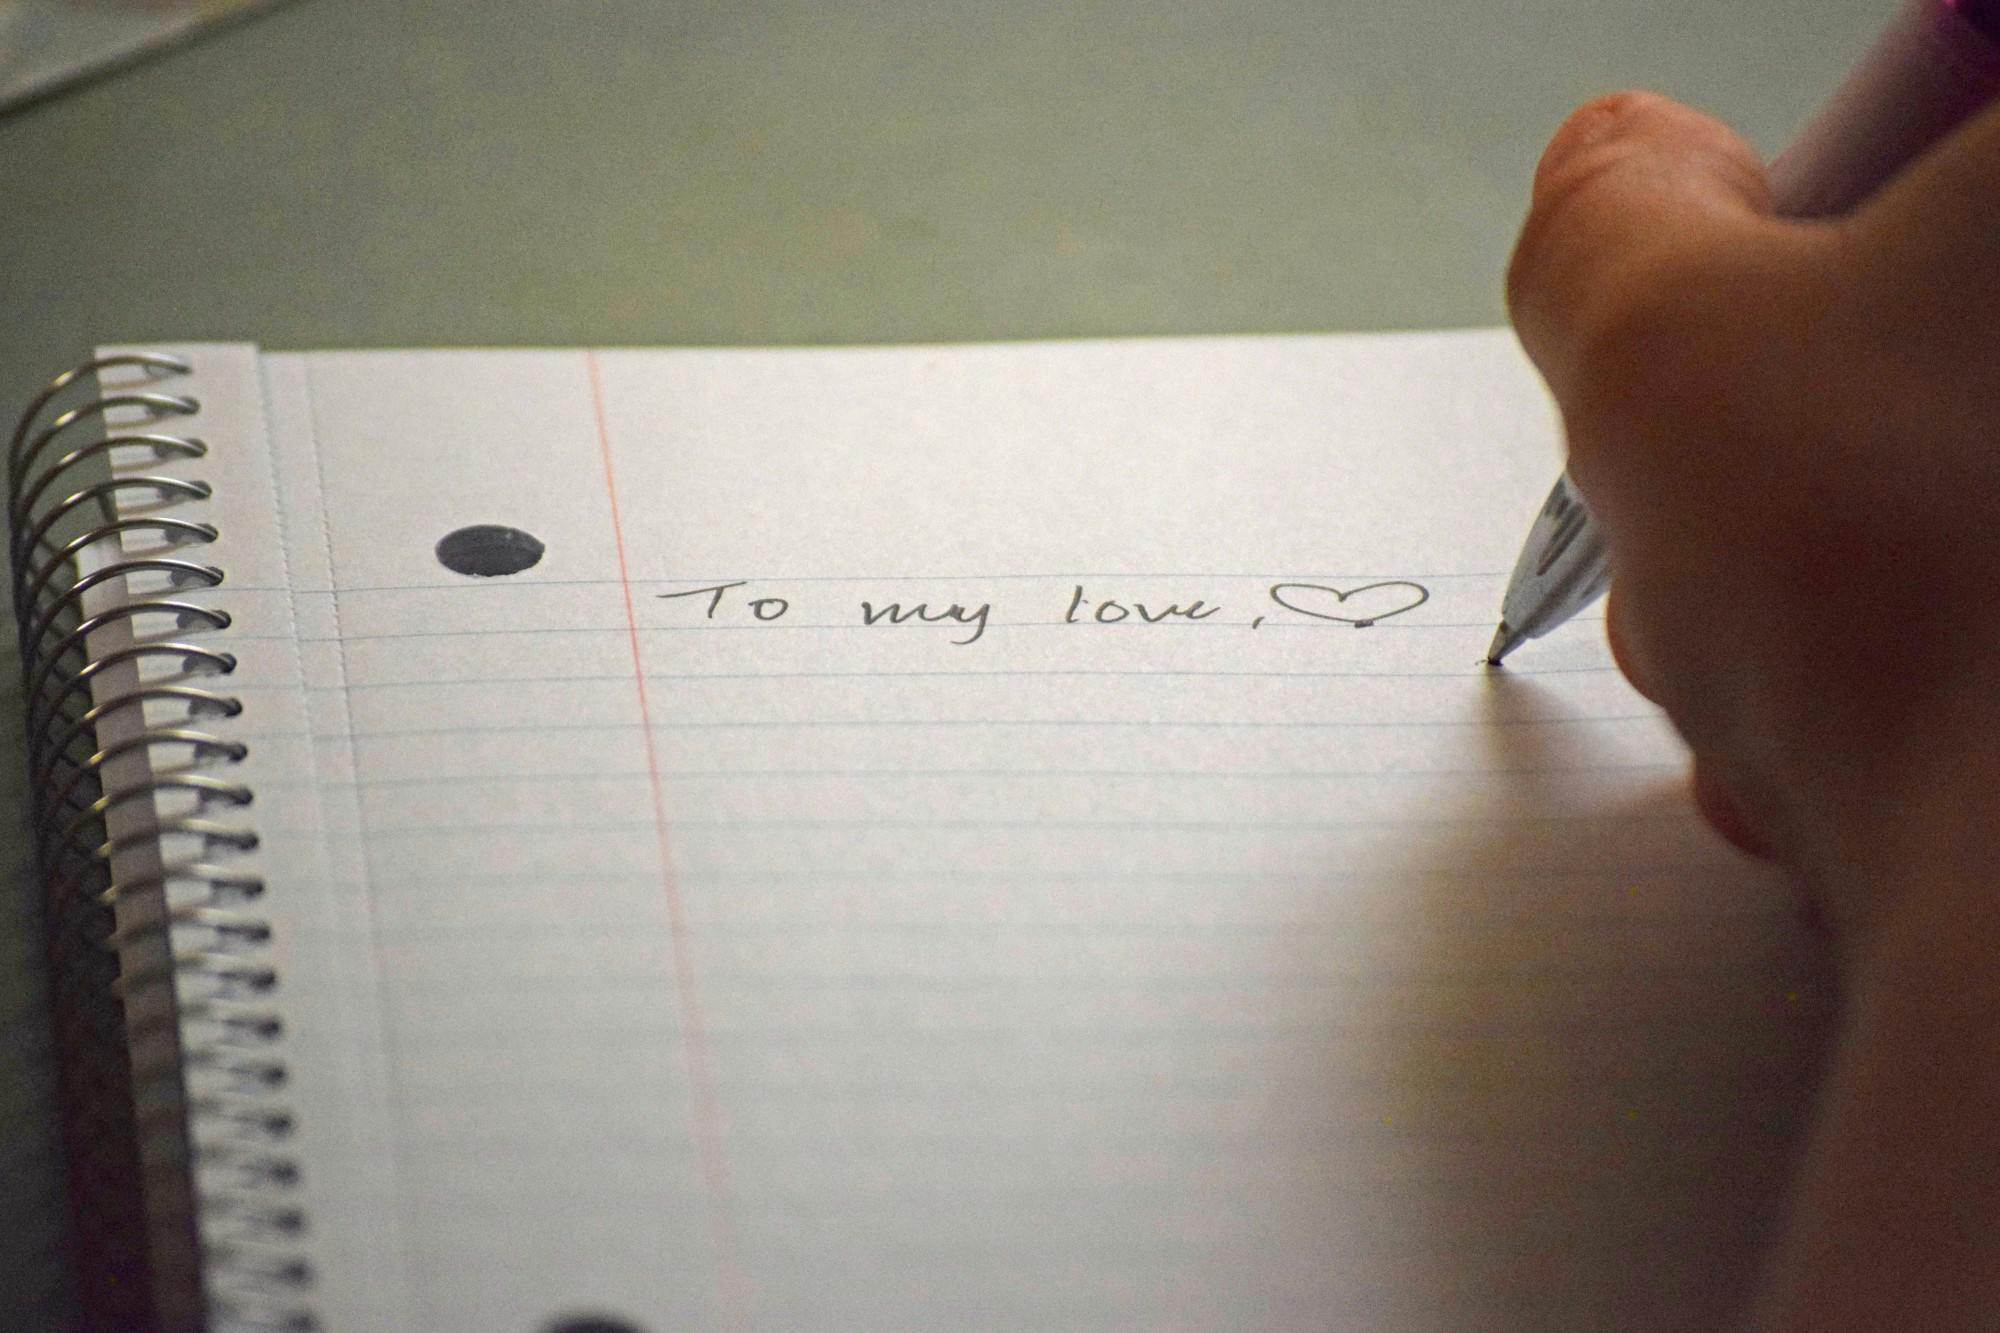 To my love, ♡